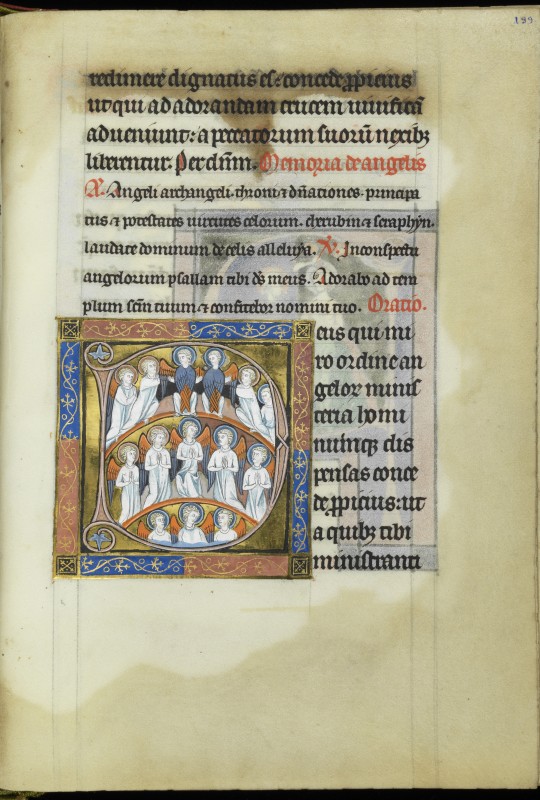 199
redimere dignatus es: concede ꝓpicius
ut qui ad adorandam crucem uiuificā
adueniunt: a peccatorum suorū nexibꝫ
liberentur. Per dn̄m. Memoria de angelis
A. Angeli archangeli. throni ⁊ dn̄ationes. principa
tus ⁊ potestates uirtutes celorum. cherubin ⁊ seraphyn.
laudate dominum de celis alleluya. V. In conspectu
angelorum psallam tibi d̄s meus. Adorabo ad tem
plum scm̄ tuum ⁊ confitebor nomini tuo. Oratio.
eus qui mi
ro ordine an
gelor minis
teria homi
numqꝫ dis
pensas conce
de ꝓpicius: ut
a quibꝫ tibi
ministranti